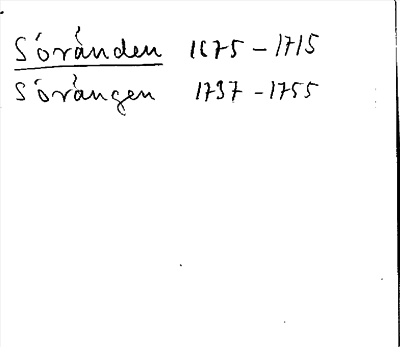 Söränden 1675 - 1715
Sörängen 1737 - 1755